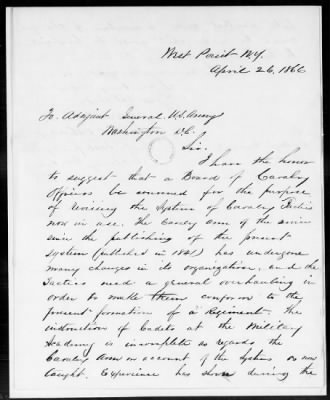 West Point N.Y.
April 26, 1866
To Adjutant General U.S. Army
Washington D.C.
Sir.
I have the honor
to suggest that a Board of Cavalry
Officers be convened for the purpose
of revising the System of Cavalry Tactics
now in use. The Cavalry arm of the service
since the publishing of the present
system (published in 1841) has undergone
many changes in its organization, and the
Tactics need a general overhauling in
order to make them conform to the
present formation of a Regiment. The
instruction of Cadets at the Military
Academy is incomplete as regards the
Cavalry Arm on account of the System as now
taught. Experience has shown during the